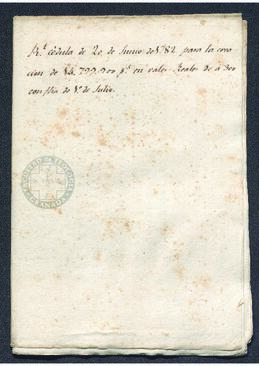 Rl. cédula de 20 de Junio de 1782 para la crea
cion de 14.799.900 ps. en vales Reales de á 300
con fha de 1º de Julio.
GRANADA